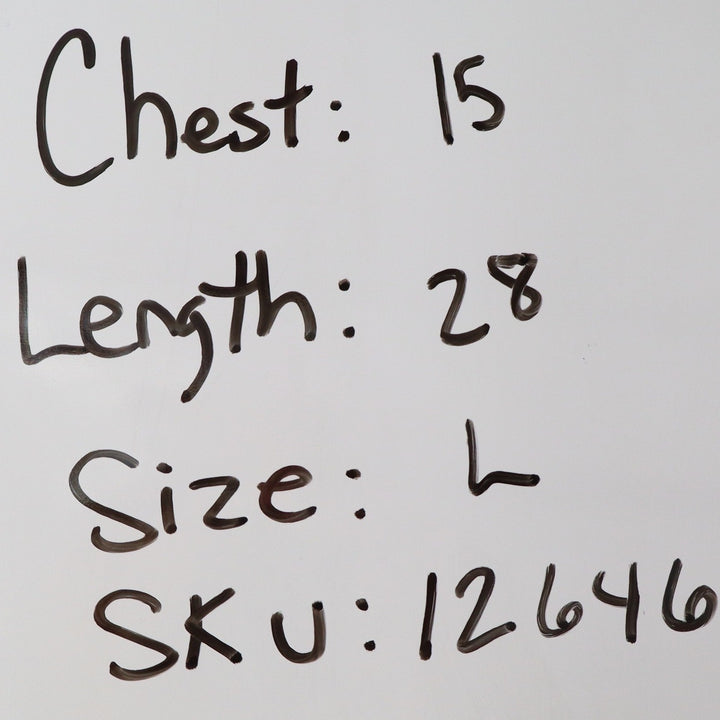 Chest: 15
Length: 28
Size: L
SKU: 12646